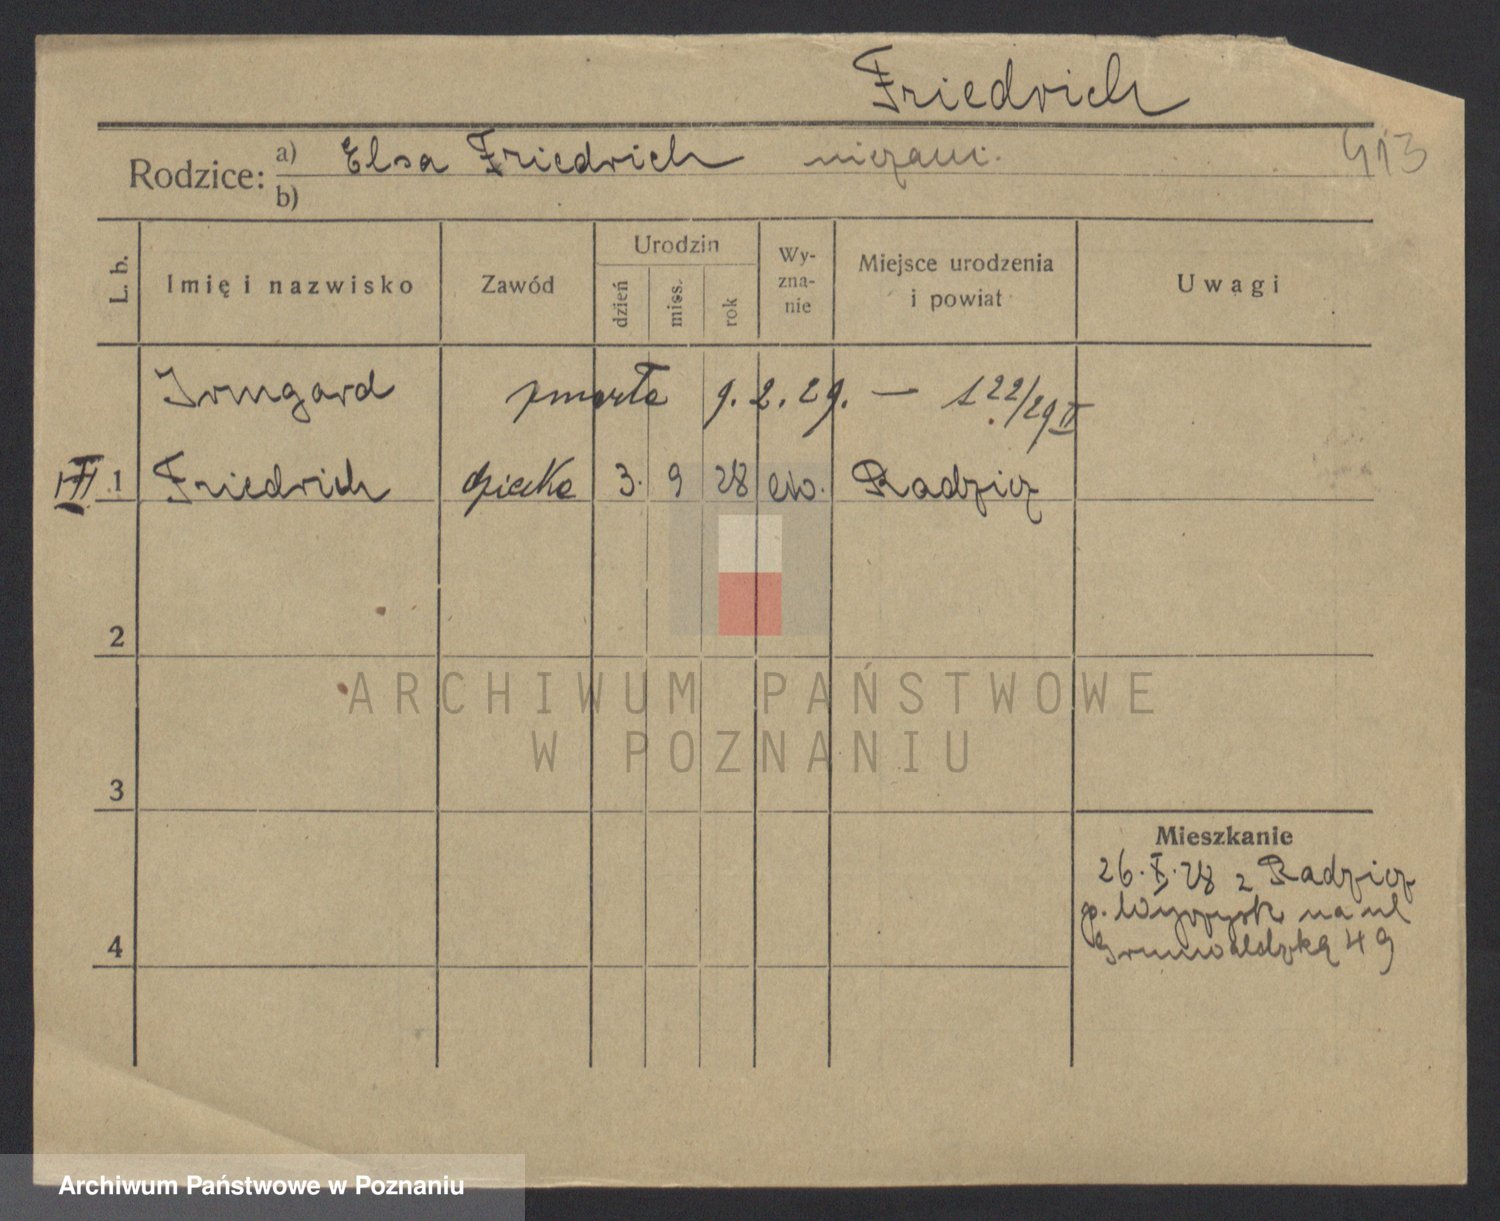 Friedrich
413
Rodzice: a) Elsa Friedrich niezam.
b)
L. b. Imię i nazwisko Zawód Urodzin dzień mies. rok Wy-zna-nie Miejsce urodzenia i powiat Uwagi
Irmgard zmarła 9.2.29. — 122/29 II
III 1 Friedrich dziecko 3. 9 28 ew. Radzicz
2
3
4
Mieszkanie
26.X.28 z Radzicz
p. Wyrzysk na ul
Grunwaldzką 49
ARCHIWUM PAŃSTWOWE
W POZNANIU
Archiwum Państwowe w Poznaniu